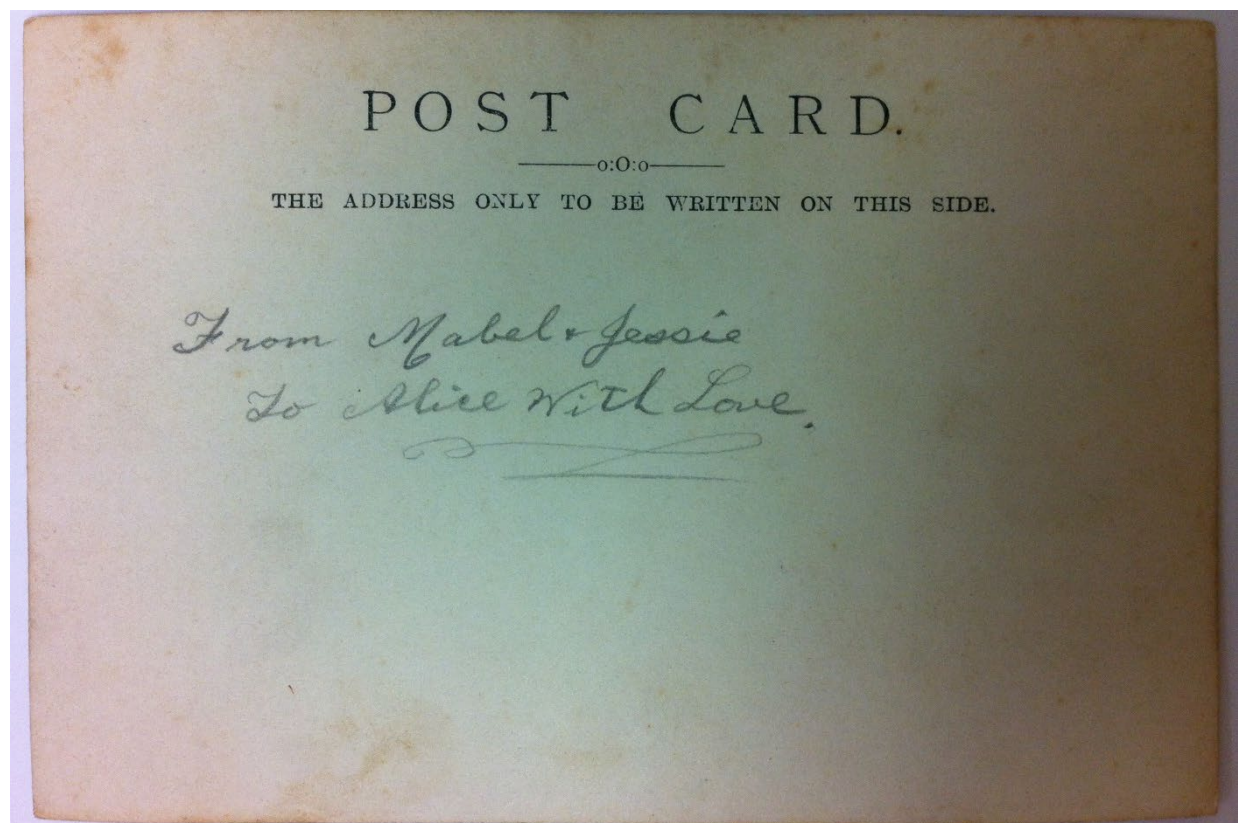 POST CARD.
o:O:o
THE ADDRESS ONLY TO BE WRITTEN ON THIS SIDE.
From Mabel & Jessie
To Alice With Love.